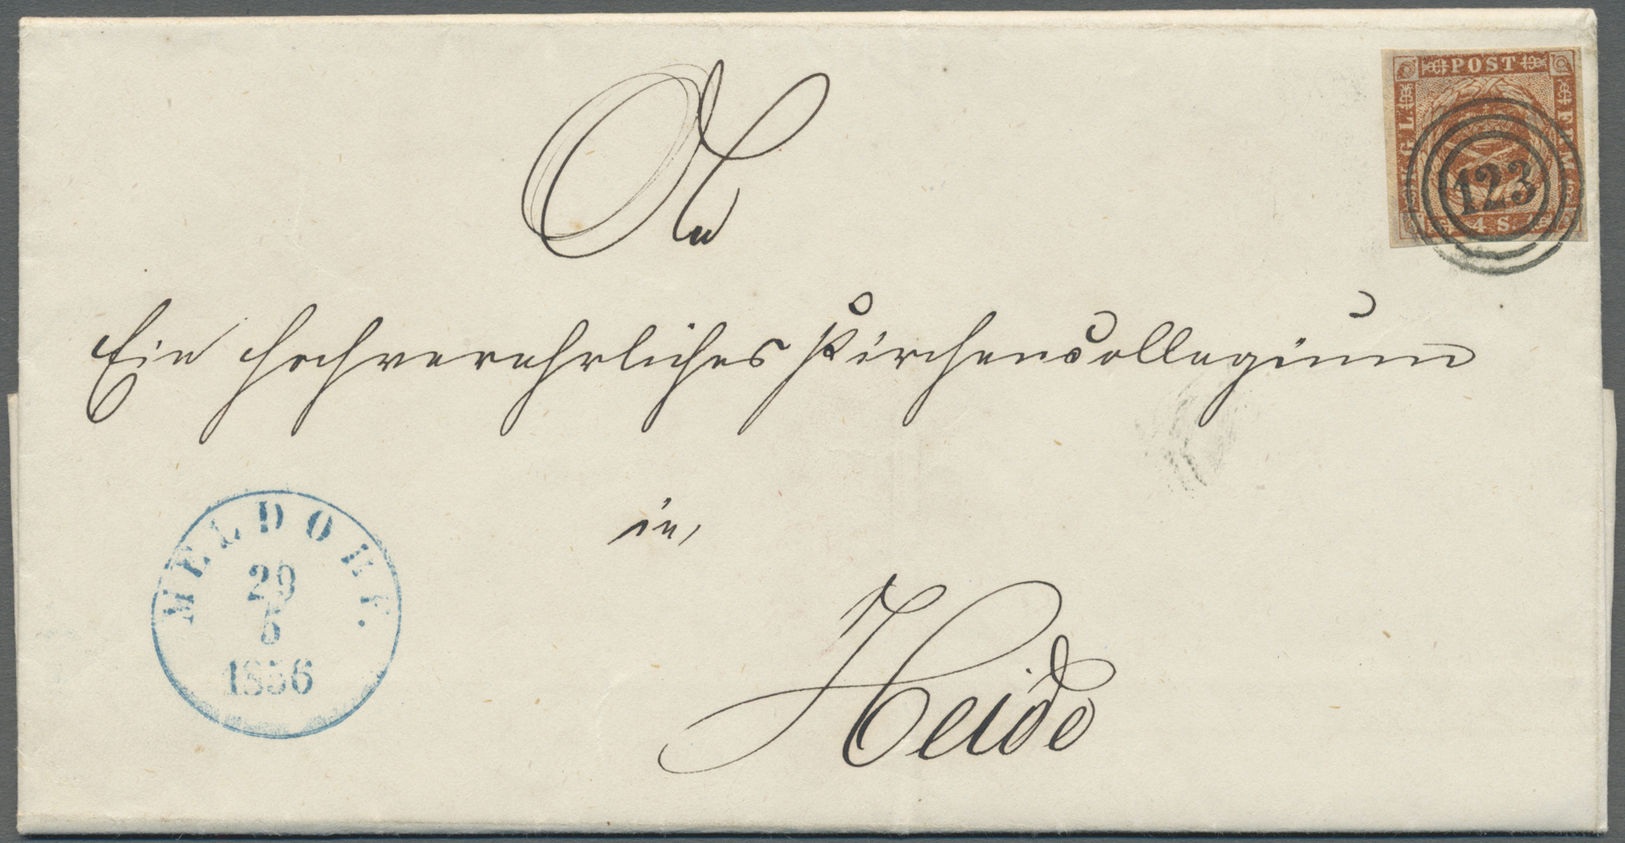 KGL POST FRM
4 S.
123
An
Ein hochverehrliches Kirchencollegium
in
Heide
MELDORF.
29
5
1856